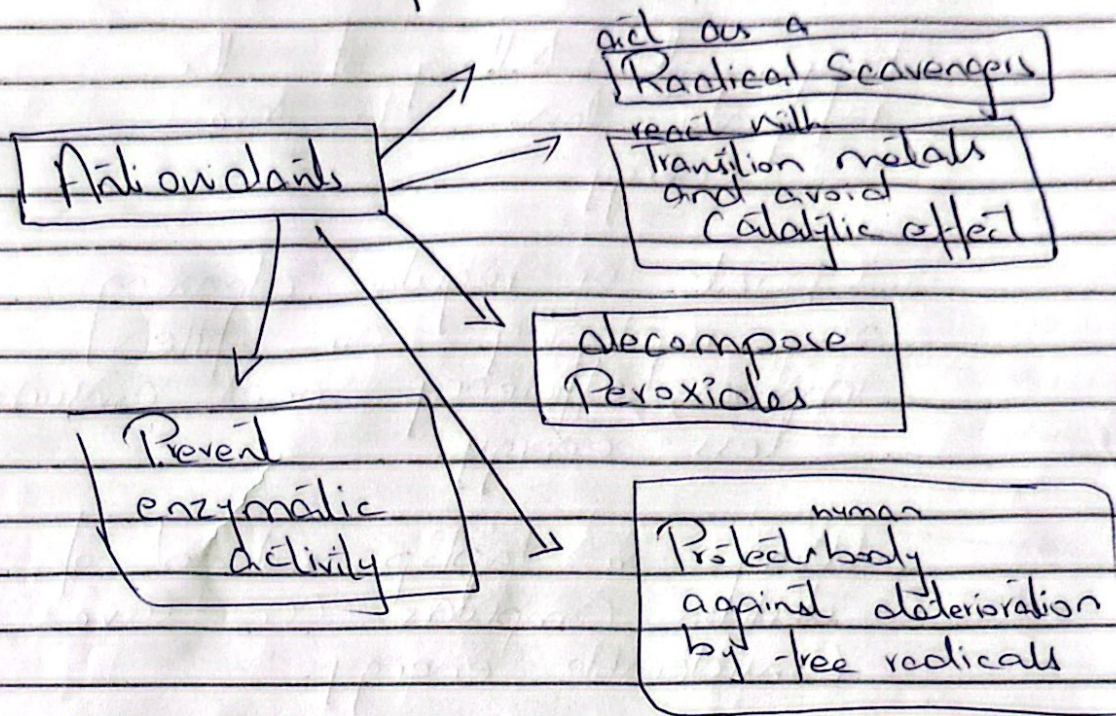 act as a
Radical Scavengers
Antioxidants
react with
Transition metals
and avoid
Catalytic effect
decompose
Peroxides
Prevent
enzymatic
activity
human
Protect body
against deterioration
by free radicals